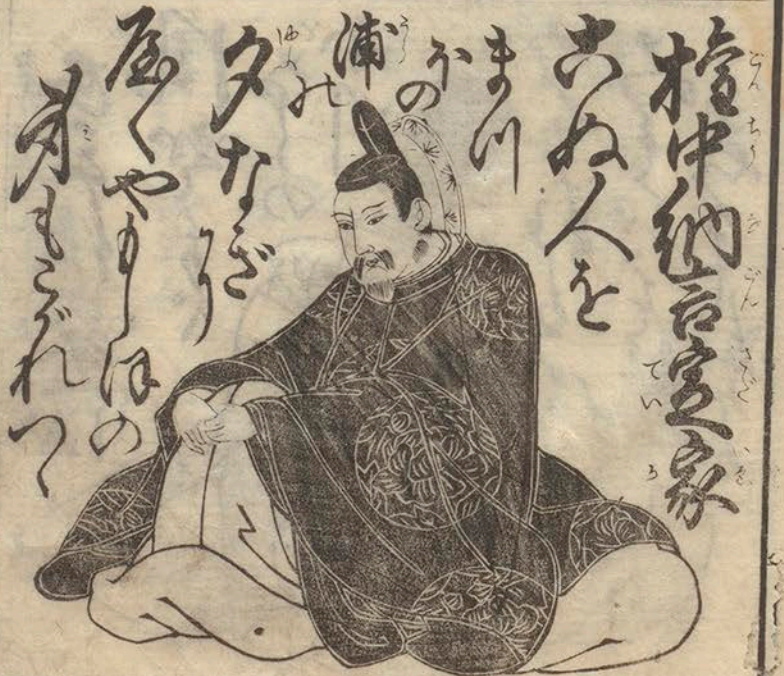 權中納言定家
ごんちうなごんさだいゑ
ていか
こぬ人を
まつ
ほの
浦の
うら
夕なぎに
ゆふ
やくやもしほの
身もこがれつゝ
み